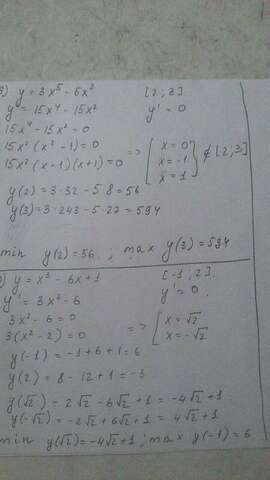 ) y = 3x⁵ - 5x³ [2; 3]
y' = 15x⁴ - 15x² y' = 0
15x⁴ - 15x² = 0
15x²(x² - 1) = 0 => [ x = 0
15x²(x - 1)(x + 1) = 0 x = -1 ∉ [2; 3]
x = 1
y(2) = 3·32 - 5·8 = 56
y(3) = 3·243 - 5·27 = 594
min y(2) = 56 ; max y(3) = 594
) y = x³ - 6x + 1 [-1; 2]
y' = 3x² - 6 y' = 0
3x² - 6 = 0
3(x² - 2) = 0 => [ x = √2
x = -√2
y(-1) = -1 + 6 + 1 = 6
y(2) = 8 - 12 + 1 = -3
y(√2) = 2√2 - 6√2 + 1 = -4√2 + 1
y(-√2) = -2√2 + 6√2 + 1 = 4√2 + 1
min y(√2) = -4√2 + 1 ; max y(-1) = 6